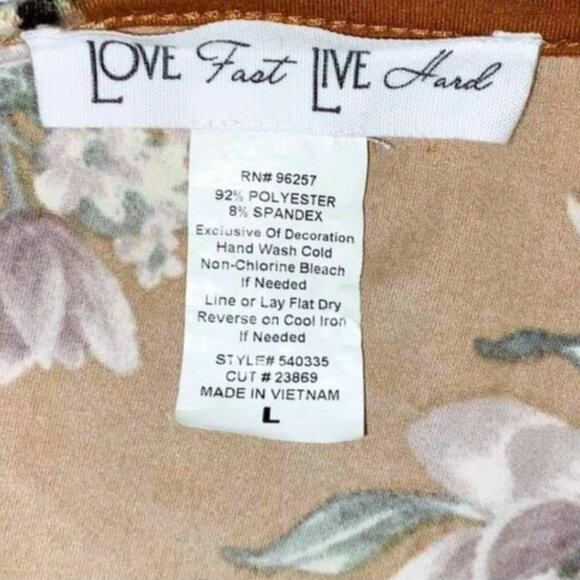 LOVE Fast LIVE Hard
RN# 96257
92% POLYESTER
8% SPANDEX
Exclusive Of Decoration
Hand Wash Cold
Non-Chlorine Bleach
If Needed
Line or Lay Flat Dry
Reverse on Cool Iron
If Needed
STYLE# 540335
CUT # 23869
MADE IN VIETNAM
L